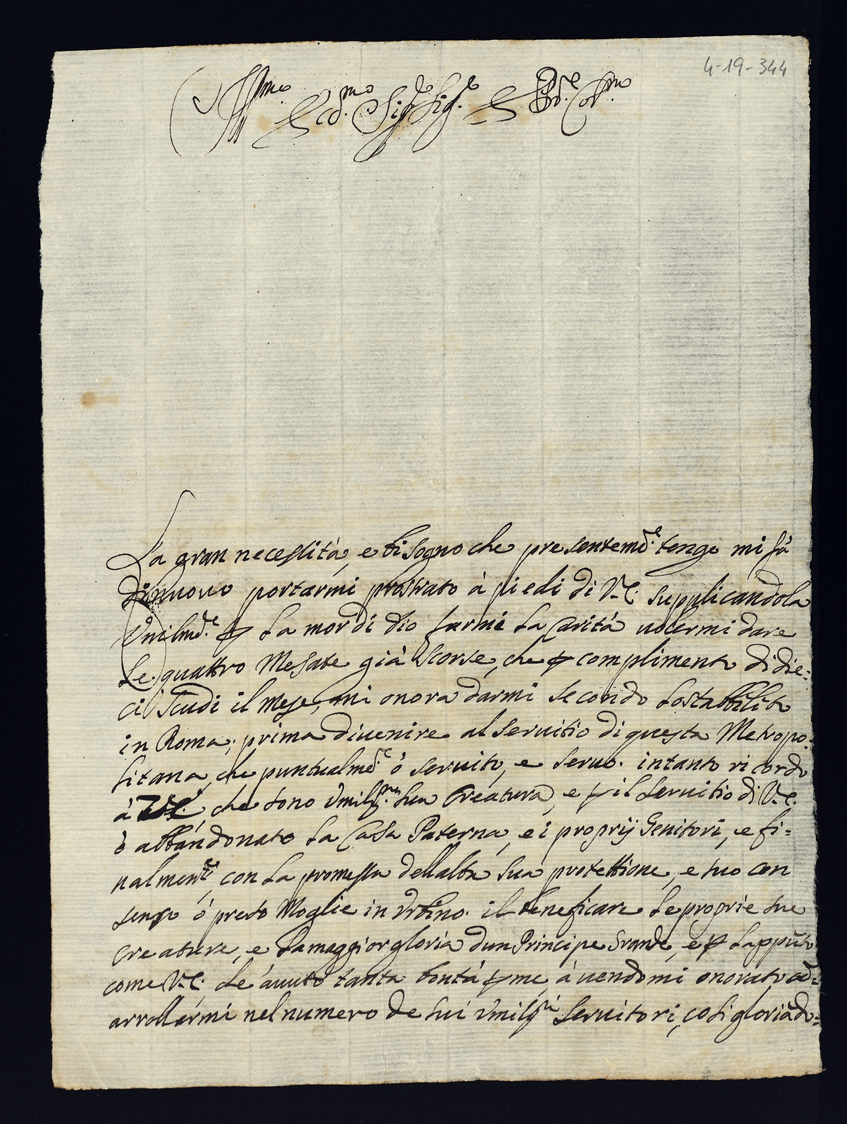 4-19-344
Ill.mo Ecc.mo Sig.re Sig.re e Pad.e Col.mo
La gran necessità, e bisogno che presentem.te tengo mi fà
di nuovo portarmi prostrato à piedi di V.E. supplicandola
Umilm.te ꝑ La mor di dio farmi La Carità volermi dare
Le quattro Mesate già scorse, che ꝑ complimento di die:
ci scudi il mese, mi onora darmi secondo Lo stabbilito
in Roma; prima di venire al servitio di questa Metropo:
litana, che puntualm.te ò servito, e servo. intanto ricordo
à VE. che sono Umiliss.ma sua Creatura, e ꝑ il servitio di V.E.
ò abbandonato La Casa Paterna, e i proprij Genitori, e fi=
nalmente, con La promessa dell'alta sua protettione, e suo con
senso ò preso Moglie in Urbino. il beneficare Le proprie sue
Creature, e La maggior gloria d'un Principe Grande, e ꝑ L'appunto
come V.E. Le àvuto tanta bontà ꝑ me, àvendomi onorato ad=
arrollarmi nel numero de sui Umiliss.mi Servitori, così gloriãdo=